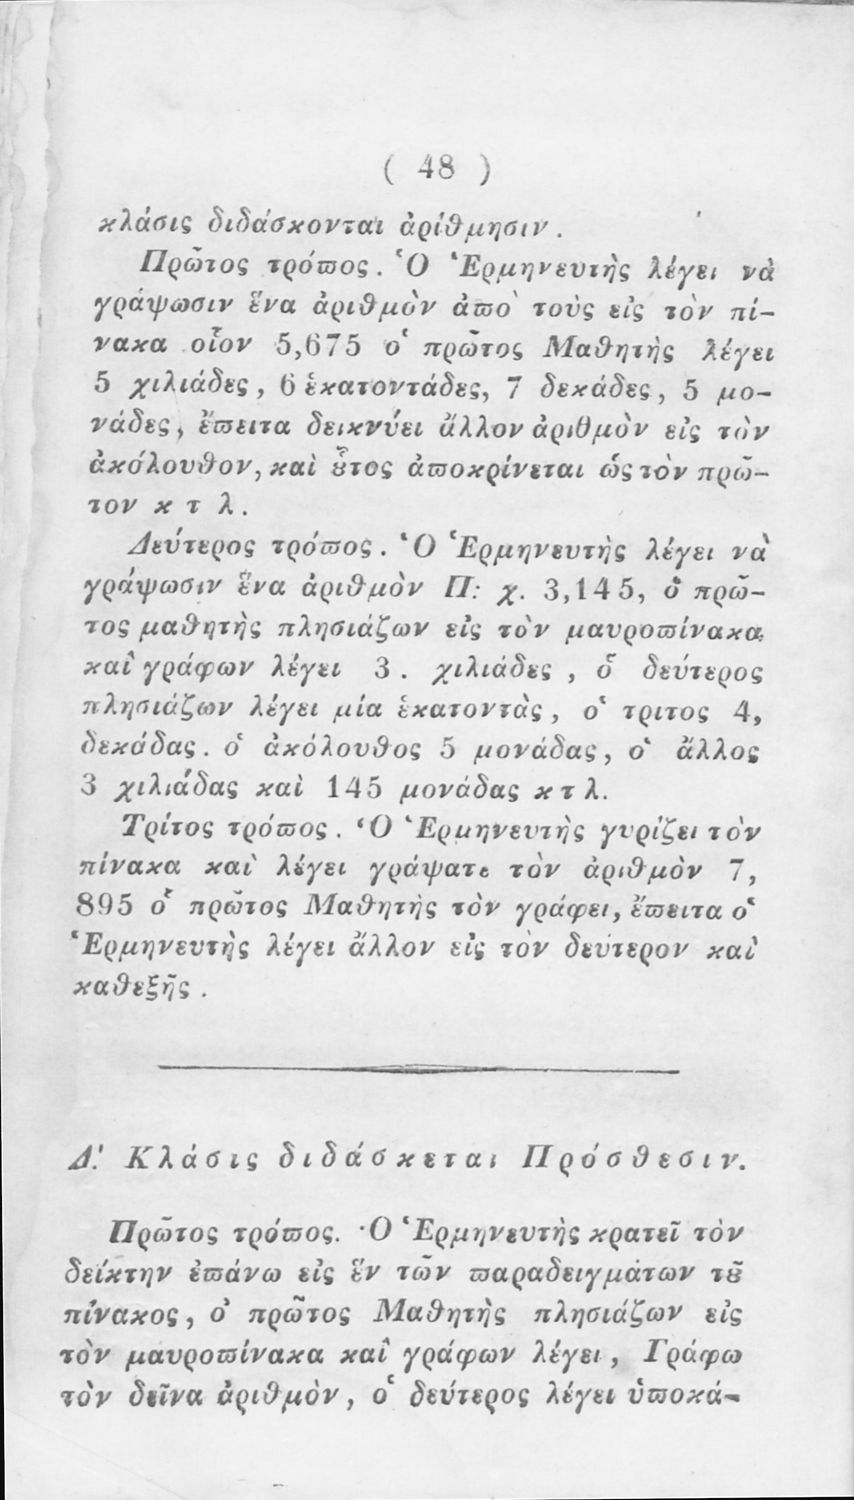 ( 48 )
κλάσις διδάσκονται ἀρίθμησιν .
Πρῶτος τρόπος . Ὁ Ἑρμηνευτὴς λέγει νὰ
γράψωσιν ἕνα ἀριθμὸν ἀπὸ τοὺς εἰς τὸν πί-
νακα οἷον 5,675 ὁ πρῶτος Μαθητὴς λέγει
5 χιλιάδες , 6 ἑκατοντάδες, 7 δεκάδες , 5 μο-
νάδες , ἔπειτα δεικνύει ἄλλον ἀριθμὸν εἰς τὸν
ἀκόλουθον, καὶ ȣ̃τος ἀποκρίνεται ὡς τὸν πρῶ-
τον κ τ λ .
Δεύτερος τρόπος . Ὁ Ἑρμηνευτὴς λέγει νὰ
γράψωσιν ἕνα ἀριθμὸν Π: χ. 3,145, ὁ πρῶ-
τος μαθητὴς πλησιάζων εἰς τὸν μαυροπίνακα,
καὶ γράφων λέγει 3 . χιλιάδες , ὁ δεύτερος
πλησιάζων λέγει μία ἑκατοντὰς , ὁ τριτος 4,
δεκάδας . ὁ ἀκόλουθος 5 μονάδας , ὁ ἄλλος
3 χιλιάδας καὶ 145 μονάδας κ τ λ.
Τρίτος τρόπος . Ὁ Ἑρμηνευτὴς γυρίζει τὸν
πίνακα καὶ λέγει γράψατε τὸν ἀριθμὸν 7,
895 ὁ πρῶτος Μαθητὴς τὸν γράφει, ἔπειτα ὁ
Ἑρμηνευτὴς λέγει ἄλλον εἰς τὸν δεύτερον καὶ
καθεξῆς .
Δ.' Κλάσις διδάσκεται Πρόσθεσιν.
Πρῶτος τρόπος. Ὁ Ἑρμηνευτὴς κρατεῖ τὸν
δείκτην ἐπάνω εἰς ἓν τῶν παραδειγμάτων τȣ̃
πίνακος , ὁ πρῶτος Μαθητὴς πλησιάζων εἰς
τὸν μαυροπίνακα καὶ γράφων λέγει , Γράφω
τὸν δεῖνα ἀριθμὸν , ὁ δεύτερος λέγει ὑποκά-